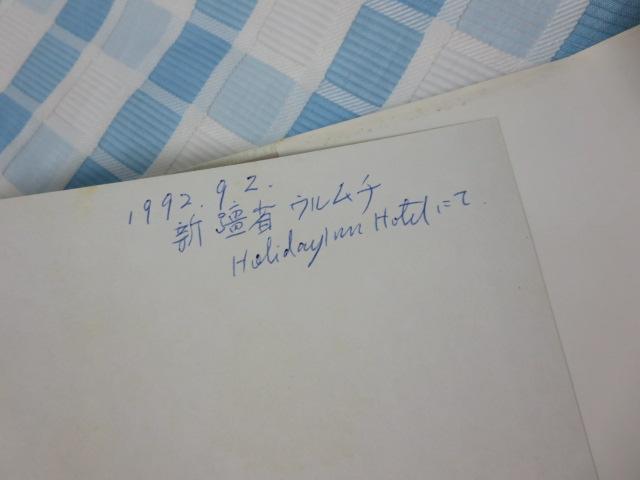 1992.9.2.
新疆省 ウルムチ
Holiday Inn Hotel にて